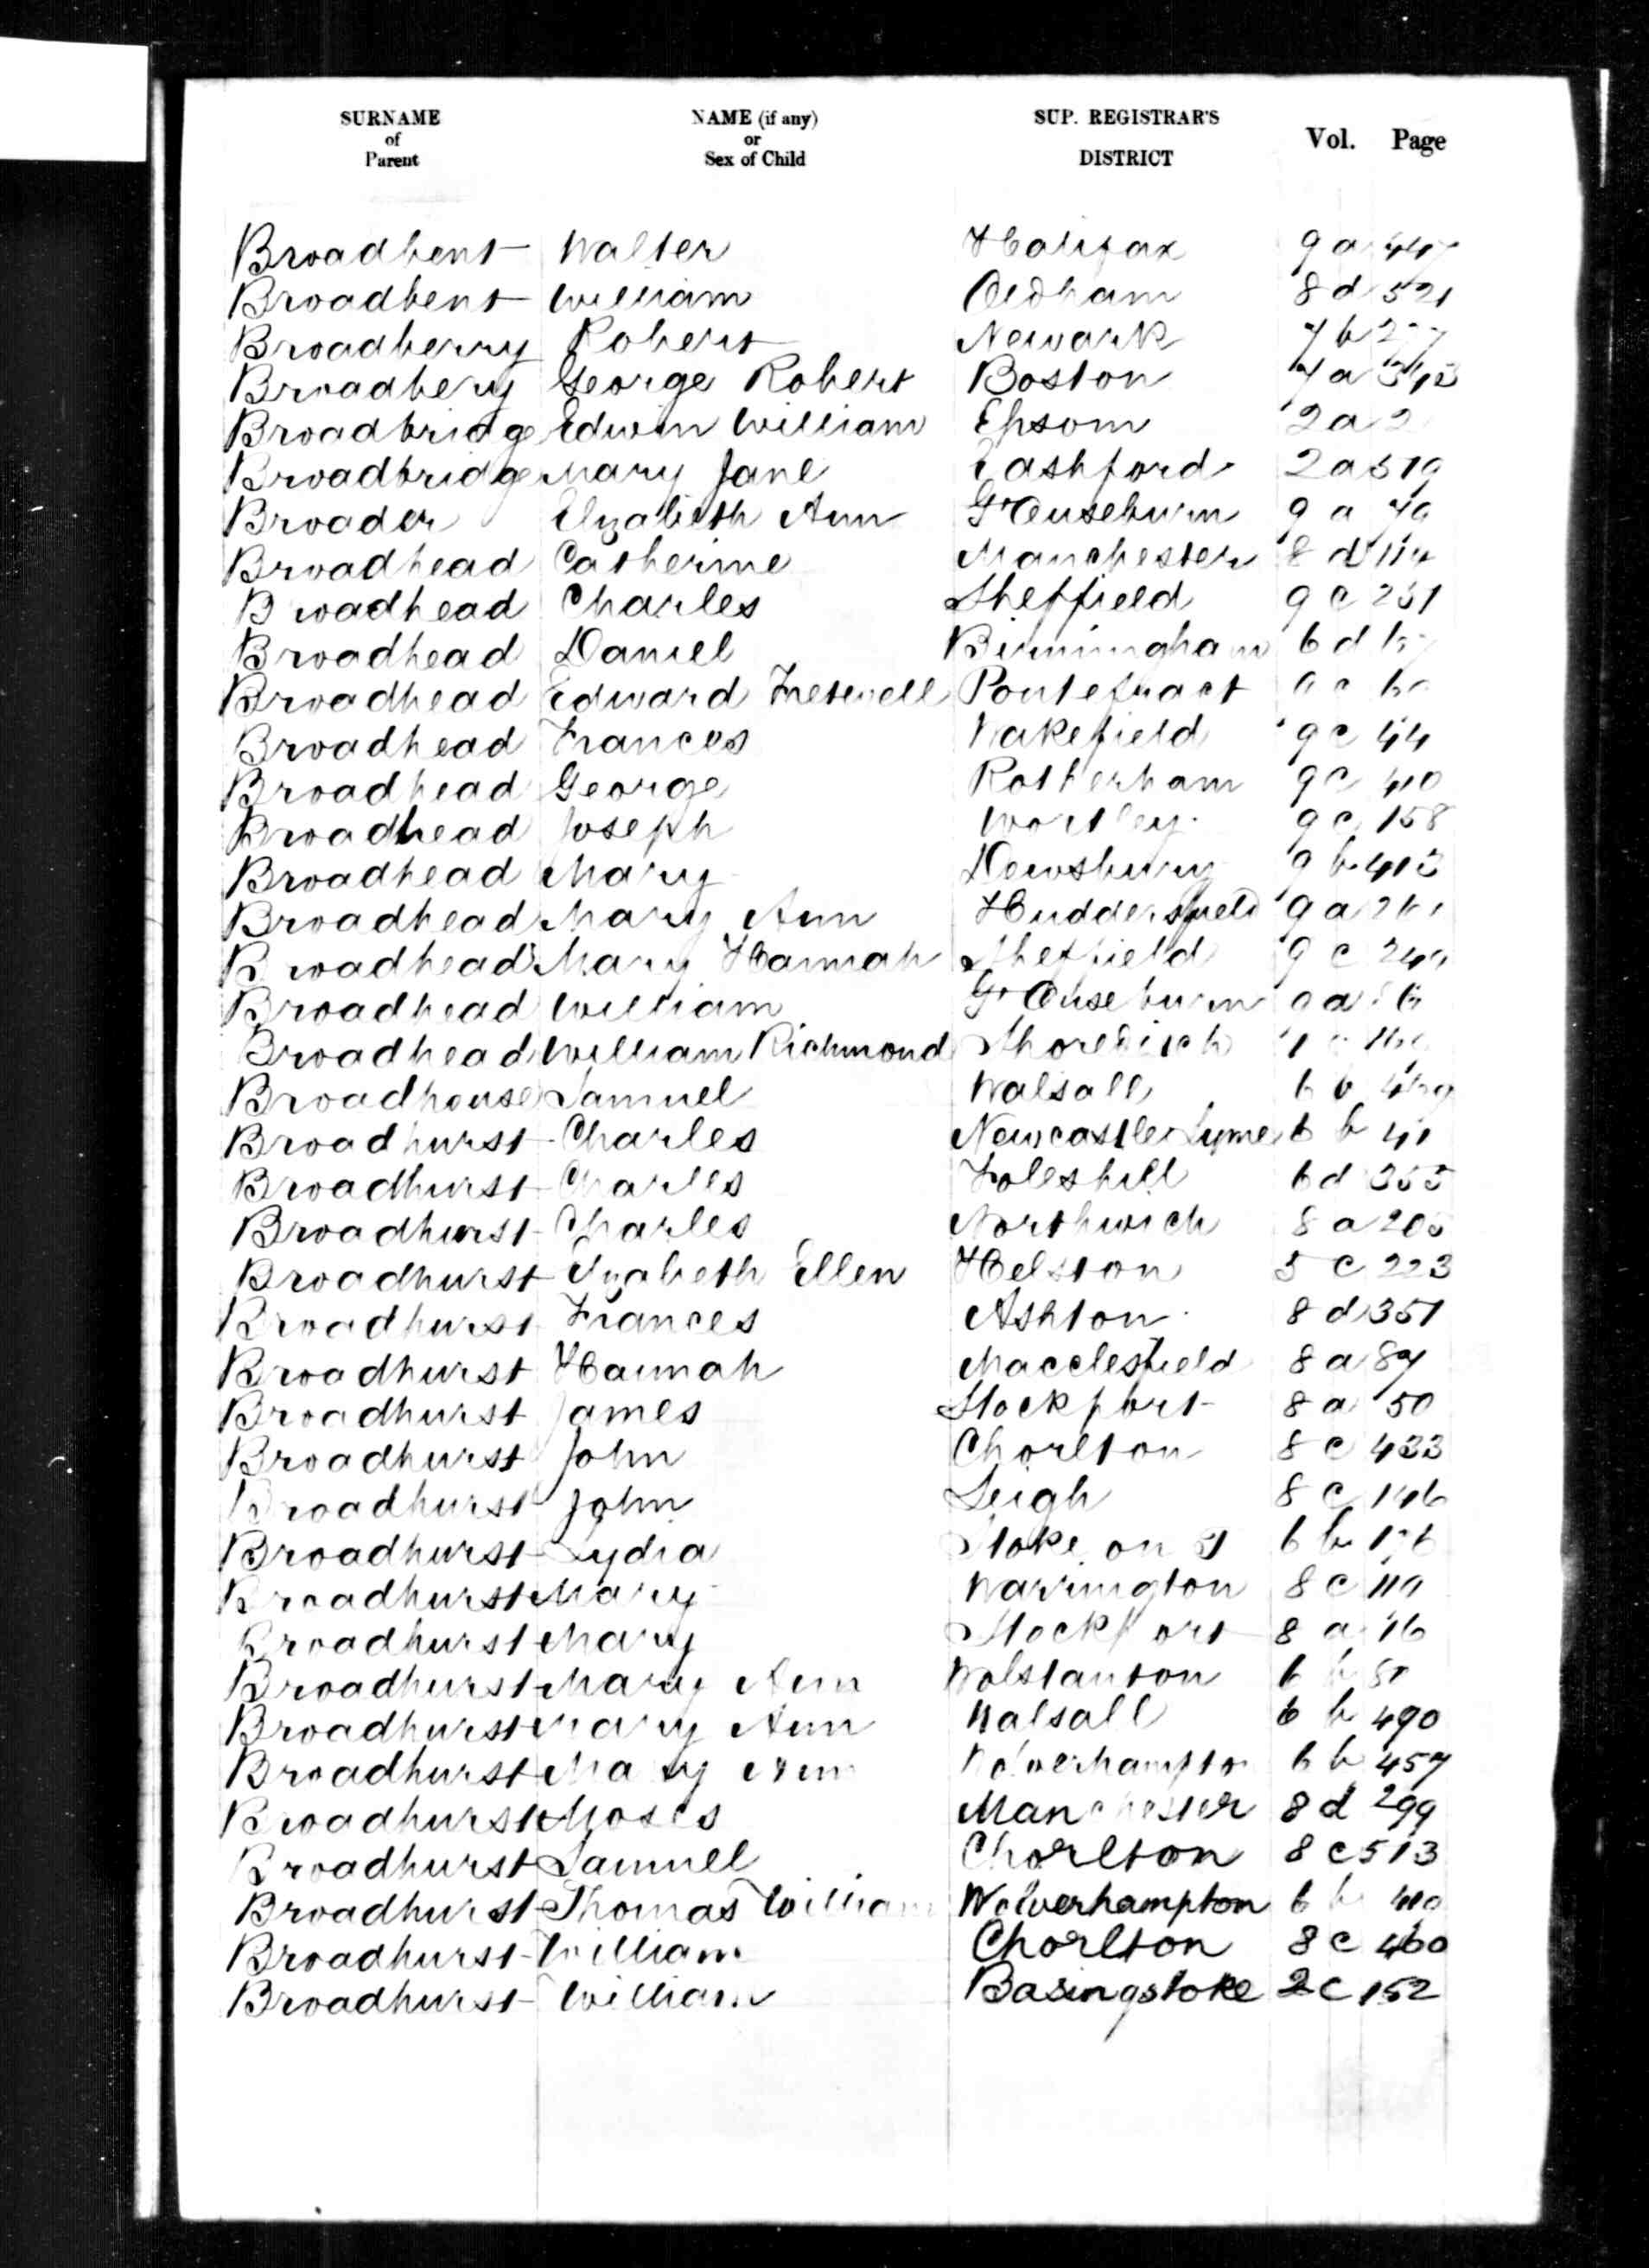 SURNAME of Parent NAME (if any) or Sex of Child SUP. REGISTRAR'S DISTRICT Vol. Page
Broadbent Walter Halifax 9 a
Broadbent William Oldham 8 d 521
Broadberry Robert Newark 7 b
Broadbery George Robert Boston 7 a 343
Broadbridge Edwin William Epsom 2 a
Broadbridge Mary Jane E Ashford 2 a 519
Broader Elizabeth Ann Gt Ouseburn 9 a 79
Broadhead Catherine Manchester 8 d 114
Broadhead Charles Sheffield 9 c 231
Broadhead Daniel Birmingham 6 d
Broadhead Edward Pontefract 9 c
Broadhead Frances Wakefield 9 c 44
Broadhead George Rotherham 9 c 410
Broadhead Joseph Wortley 9 c 158
Broadhead Mary Dewsbury 9 b 413
Broadhead Mary Ann Huddersfield 9 a
Broadhead Mary Hannah Sheffield 9 c
Broadhead William Gt Ouseburn 9 a
Broadhead William Richmond Shoreditch 1 c
Broadhouse Samuel Walsall 6 b
Broadhurst Charles Newcastle Lyme 6 b 41
Broadhurst Charles Foleshill 6 d 355
Broadhurst Charles Northwich 8 a 205
Broadhurst Elizabeth Ellen Helston 5 c 223
Broadhurst Frances Ashton 8 d 351
Broadhurst Hannah Macclesfield 8 a 87
Broadhurst James Stockport 8 a 50
Broadhurst John Chorlton 8 c 433
Broadhurst John Leigh 8 c 146
Broadhurst Lydia Stoke on T 6 b
Broadhurst Mary Warrington 8 c 119
Broadhurst Mary Stockport 8 a 16
Broadhurst Mary Ann Wolstanton 6 b
Broadhurst Mary Ann Walsall 6 b 490
Broadhurst Mary Ann Wolverhampton 6 b 457
Broadhurst Moses Manchester 8 d 299
Broadhurst Samuel Chorlton 8 c 513
Broadhurst Thomas William Wolverhampton 6 b 410
Broadhurst William Chorlton 8 c 460
Broadhurst William Basingstoke 2 c 152